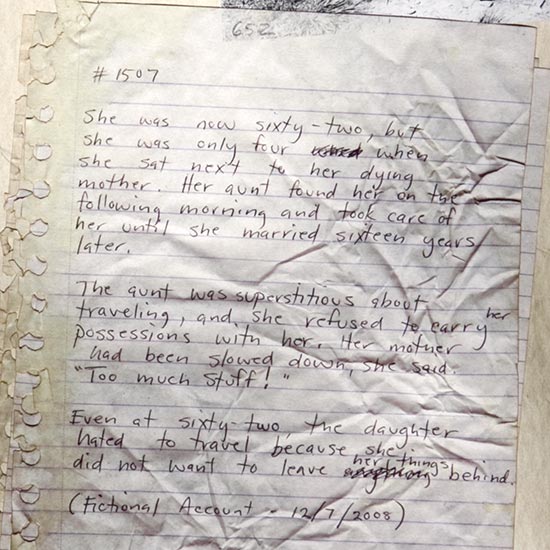 652
# 1507
She was now sixty-two, but
she was only four when
she sat next to her dying
mother. Her aunt found her on the
following morning and took care of
her until she married sixteen years
later.
The aunt was superstitious about
traveling, and she refused to carry her
possessions with her. Her mother
had been slowed down, she said.
"Too much stuff!"
Even at sixty-two, the daughter
hated to travel because she
did not want to leave her things behind.
(Fictional Account - 12/7/2008)